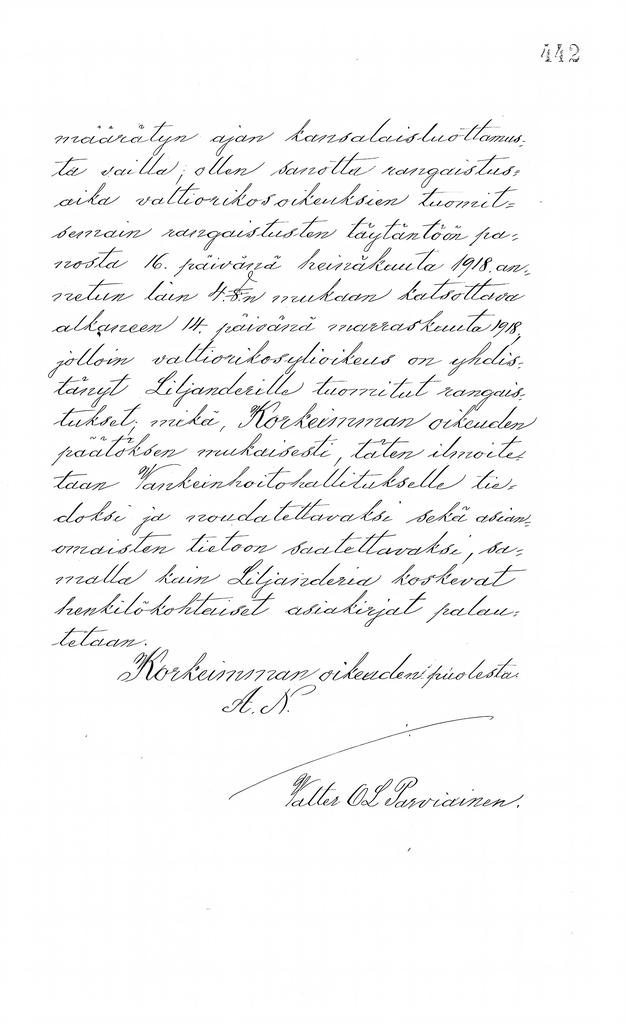 442
määrätyn ajan kansalaisluottamus-
ta vailla; ollen sanottu rangaistus-
aika valtiorikosoikeuksien tuomit-
semain rangaistusten täytäntöön pa-
nosta 16. päivänä heinäkuuta 1918 an-
netun lain 4 §:n mukaan katsottava
alkaneen 14. päivänä marraskuuta 1918,
jolloin valtiorikosylioikeus on yhdis-
tänyt Liljanderille tuomitut rangais-
tukset; mikä, Korkeimman oikeuden
päätöksen mukaisesti, täten ilmoite-
taan Vankeinhoitohallitukselle tie-
doksi ja noudatettavaksi sekä asian-
omaisten tietoon saatettavaksi, sa-
malla kuin Liljanderia koskevat
henkilökohtaiset asiakirjat palau-
tetaan.
Korkeimman oikeuden puolesta:
A. N.
Valter O L Parviainen.